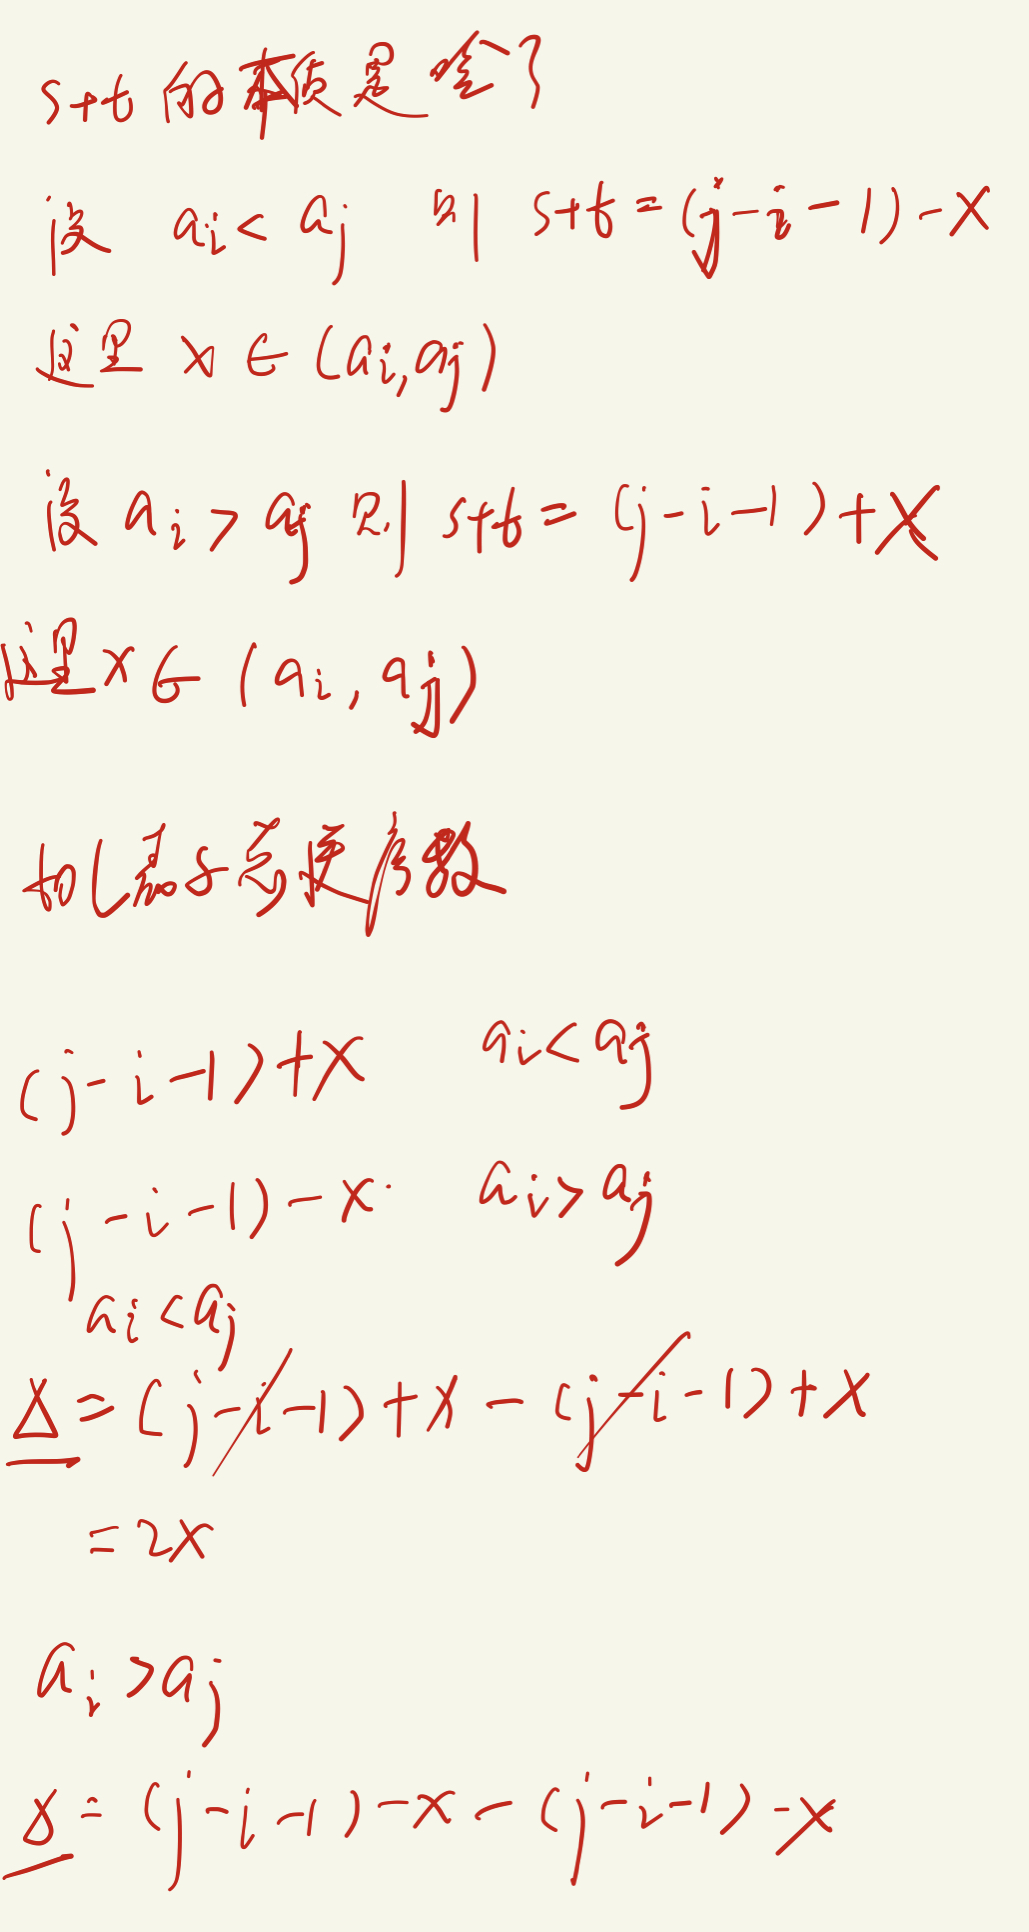 s+t 的本质是啥?
设 ai < aj 则 s+t = (j-i-1)-X
这里 x ∈ (ai, aj)
设 ai > aj 则 s+t = (j-i-1)+X
这里 x ∈ (ai, aj)
数
(j-i-1)+X ai < aj
(j-i-1)-x ai > aj
ai < aj
Δ = (j-i-1)+X-(j-i-1)+X
= 2X
ai > aj
Δ = (j-i-1)-x-(j-i-1)-x